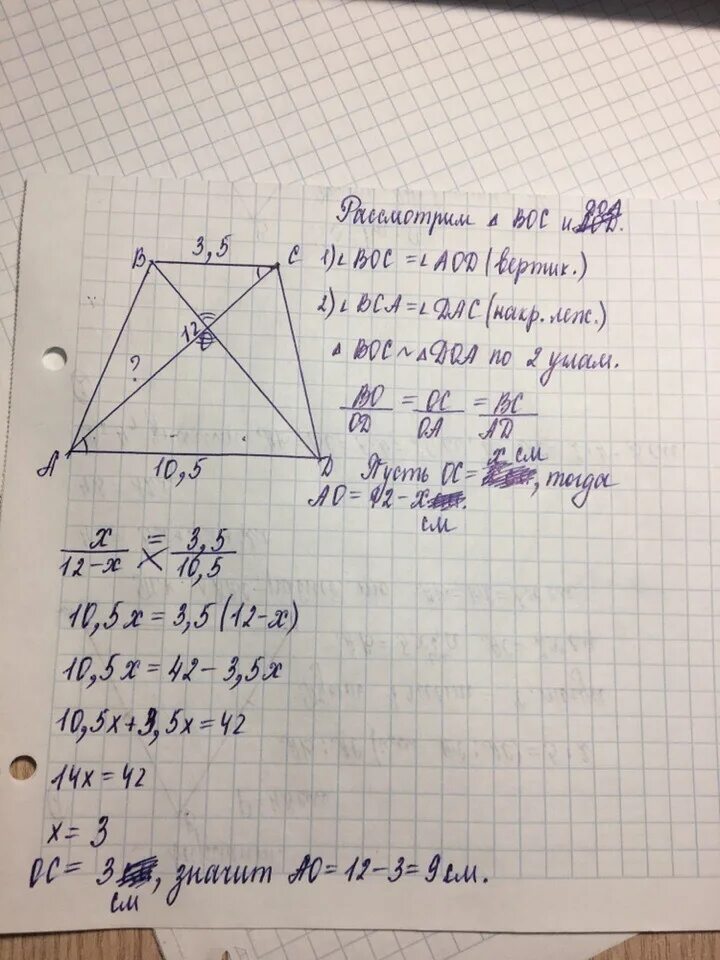 Рассмотрим △ BOC и DOA
1) ∠ BOC = ∠ AOD (вертик.)
2) ∠ BCA = ∠ DAC (накр. леж.)
△ BOC ~ △ DOA по 2 углам.
BO/OD = OC/OA = BC/AD
Пусть OC = x см, тогда
AO = 12 - x см
B 3,5 C
12
?
A 10,5 D
x/12-x = 3,5/10,5
10,5x = 3,5(12-x)
10,5x = 42 - 3,5x
10,5x + 3,5x = 42
14x = 42
x = 3
OC = 3 см, значит AO = 12 - 3 = 9 см.